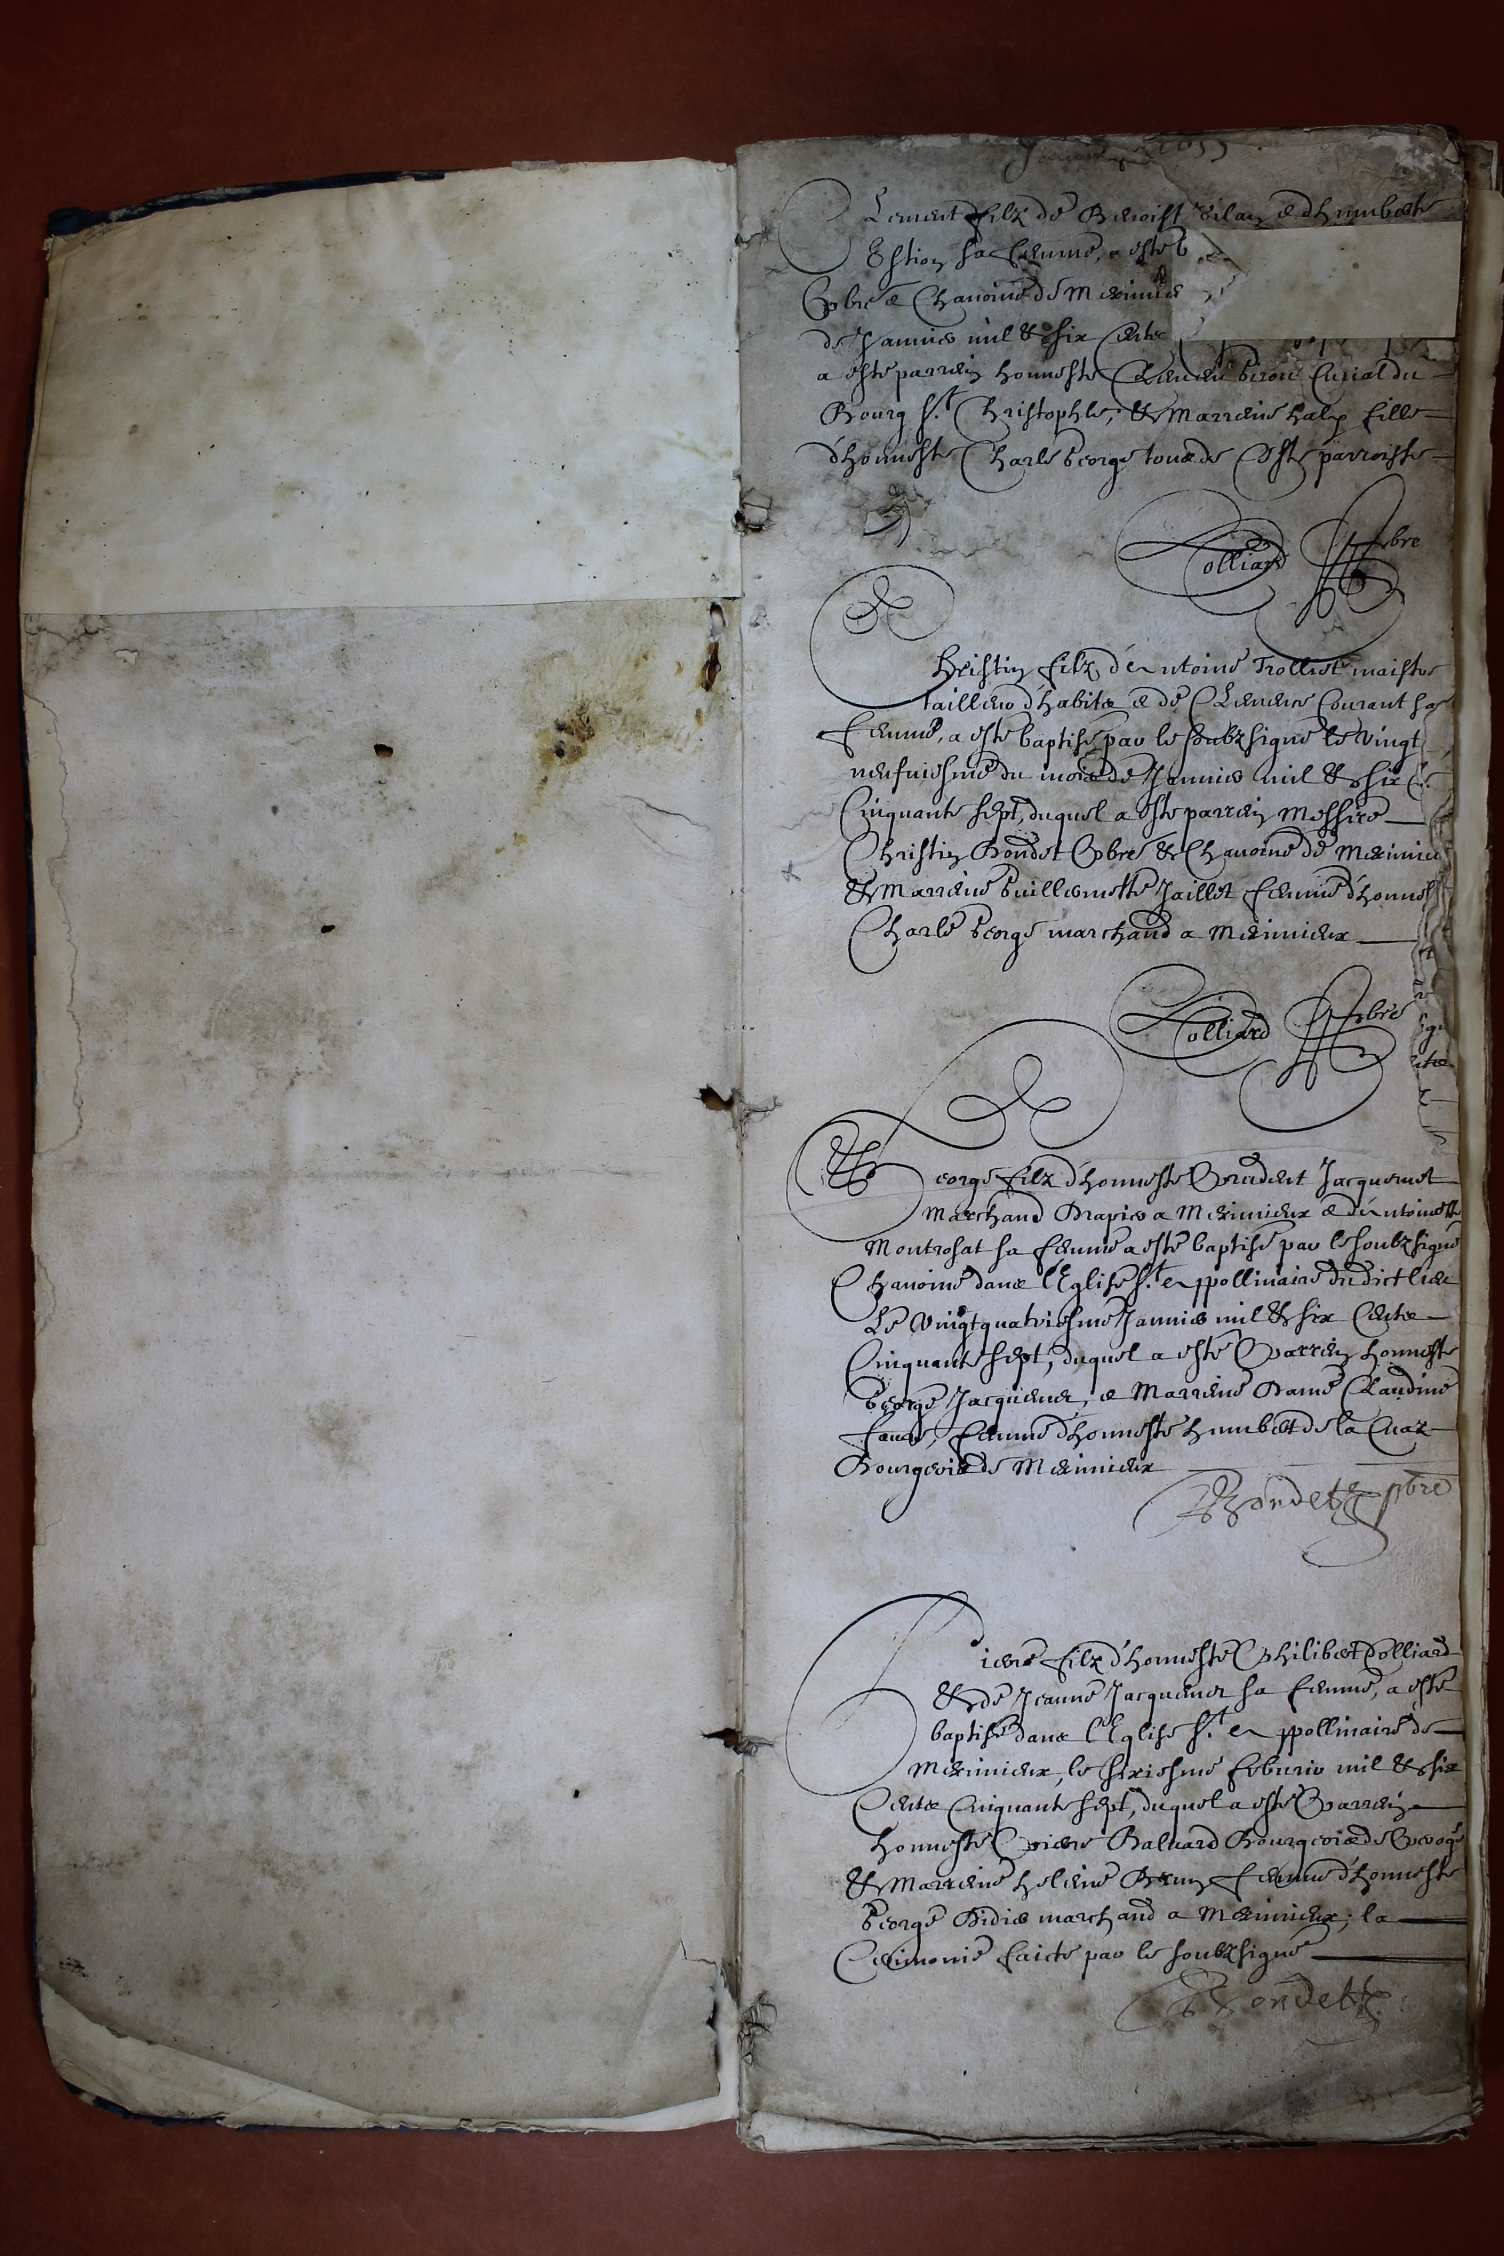 Clement filz de Benoist Vilan & d'humberte
Estion sa femme, a esté b
Pbre & Chanoine de Meximieu
de Janvier mil & six Cents
a esté parrein honneste Clement Curial du
Bourg St. Christophle, & Marreine fille
d'honneste Charle George tous de Ceste parroisse
Colliard Pbre
Christin filz d'Antoine Trolliet maistre
tailleur d'habits & de Clemence Courant sa
femme, a esté baptisé par le soubzsigné le vingt
neufviesme du mois de Janvier mil & six
Cinquante sept, duquel a esté parrein Messire
Christin Bondet Pbre & Chanoine de Meximieu
& Marreine Guillermette Jaillet femme d'honneste
Charle George marchand a Meximieux
Colliard Pbre
George filz d'honneste Prudent Jacquemet
Marchand Drapier a Meximieux & d'Antoinette
Montrosat sa femme a esté baptisé par le soubzsigné
Chanoine dans l'Eglise St. Appollinaire dudict lieu
Le vingtquatriesme Janvier mil & six Cents
Cinquante sept, duquel a esté Parrein honneste
George Jacquemet, & Marreine Dame Claudine
Favre, femme d'honneste humbert de la Cua
Bourgeois de Meximieux
Bondet pbre
Pierre filz d'honneste Philibert Colliard
& de Jeanne Jacquemet sa femme, a esté
baptisé dans l'Eglise St. Appollinaire de
Meximieux, le sixiesme febvrier mil & six
Cents Cinquante sept, duquel a esté Parrein
honneste Pierre Baluard Bourgeois de Peroge
& Marreine helene Brun femme d'honneste
George Didier marchand a Meximieux; la
Cerimonie faicte par le soubzsigné
Bondet